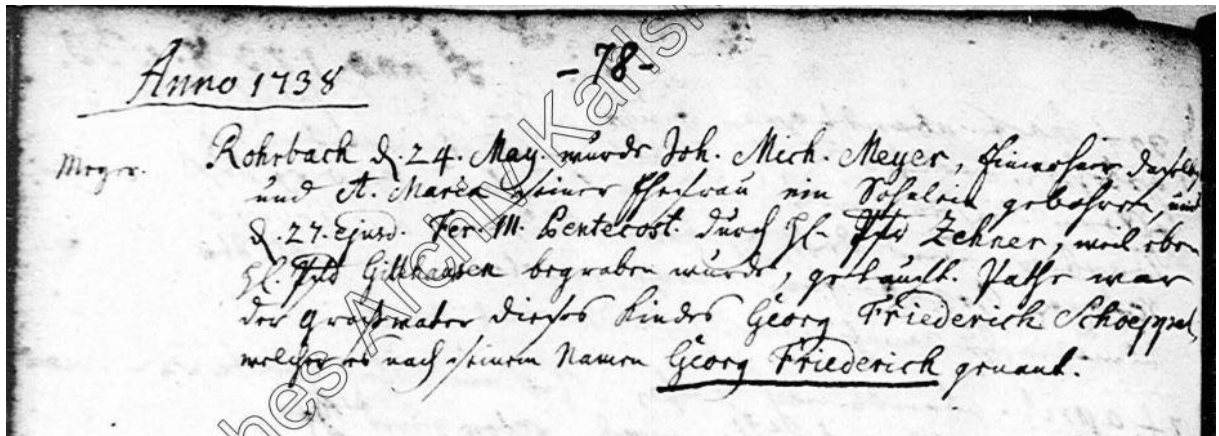 - 78 -
Anno 1738
Meyer.
Rohrbach d. 24. May. wurde Joh. Mich. Meyer, Einwohner daselbst,
und A. Maria seiner Ehefrau ein Söhnlein gebohren, und
d. 27. Ejusd. Fer. III. Pentecost. durch H. Pfr Zehner, weil eben
H. Pfr Gillhausen begraben wurde, getauft. Pathe war
der Großvater dieses Kindes Georg Friederich Schoeppel,
welcher es nach seinem Namen Georg Friederich genant.
ches Archiv Karls